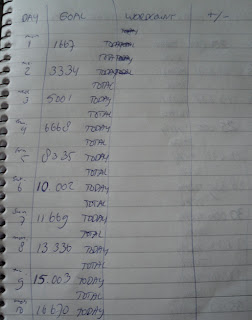 DAY GOAL WORDCOUNT +/-
1 1667
TOTAL
2 3334
TOTAL
3 5001 TODAY
TOTAL
4 6668 TODAY
TOTAL
5 8335 TODAY
TOTAL
6 10.002 TODAY
TOTAL
7 11.669 TODAY
TOTAL
8 13.336 TODAY
TOTAL
9 15.003 TODAY
TOTAL
10 16.670 TODAY